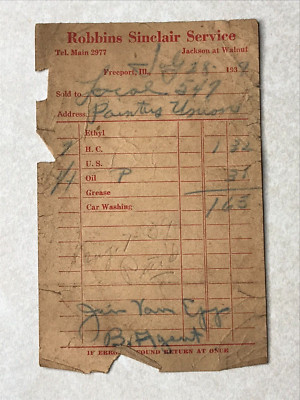 Robbins Sinclair Service
Tel. Main 2977 Jackson at Walnut
Freeport, Ill., July 28 1932
Sold to Local 547
Address Painters Union
Ethyl
7 H. C. 1 32
U. S.
Oil P 31
Grease
Car Washing 1 63
Jim Van Egg
B. Agent
IF ERROR FOUND RETURN AT ONCE